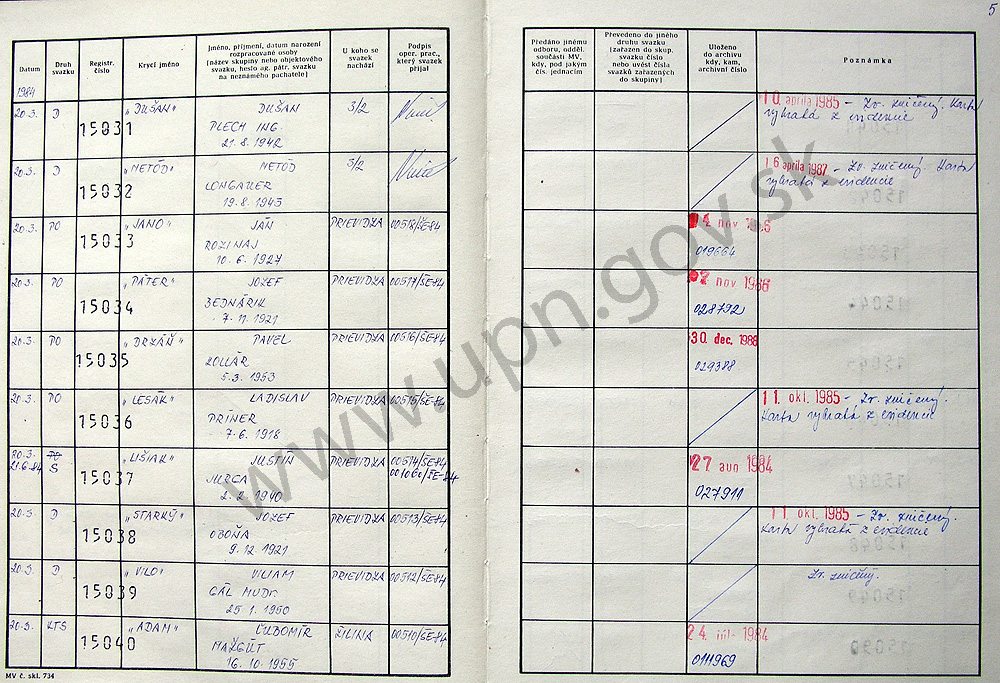 5
Datum
Druh svazku
Registr. číslo
Krycí jméno
Jméno, příjmení, datum narození
rozpracované osoby
[název skupiny nebo objektového
svazku, heslo ag. pátr. svazku
na neznámého pachatele]
U koho se
svazek
nachází
Podpis
oper. prac.,
který svazek
přijal
Předáno jinému
odboru, odděl.
součásti MV,
kdy, pod jakým
čís. jednacím
Převedeno do jiného
druhu svazku
[zařazen do skup.
svazku číslo
nebo uvést čísla
svazků zařazených
do skupiny]
Uloženo
do archivu
kdy, kam,
archivní číslo
Poznámka
1984
20.3. D 15031 "DUŠAN" DUŠAN 3/2
PLECH ING.
21.8.1942
10. apríla 1985 - Zv. zničený. Karta
vybratá z evidencie
20.3. D 15032 "METÓD" METÓD 3/2
LONGAUER
19.8.1945
16 apríla 1987 - Zv. zničený. Karta
vybratá z evidencie
20.3. PO 15033 "JANO" JÁN PRIEVIDZA 00518/ŠE-84
ROZINAJ
10.6.1927
nov
019664
20.3. PO 15034 "PÁTER" JOZEF PRIEVIDZA 00517/ŠE-84
BEDNÁRIK
7.11.1921
nov 1986
028792
20.3. PO 15035 PAVEL PRIEVIDZA 00516/ŠE-84
KOLLÁR
5.3.1953
30 dec. 1988
029388
20.3. PO 15036 "LESÁK" LADISLAV PRIEVIDZA 00515/ŠE-84
PRÍNER
7.6.1918
11. okt. 1985 - Zv. zničený.
Karta vybratá z evidencie
20.3. PO 15037 "LIŠIAK" JUSTÍN PRIEVIDZA 00514/ŠE-84
21.6.84 S JURGA
2.2.1940
27 aug 1984
027911
20.3. D 15038 "STARKÝ" JOZEF PRIEVIDZA 00513/ŠE-84
OBOŇA
9.12.1921
11 okt. 1985 - Zv. zničený.
Karta vybratá z evidencie
20.3. D 15039 "VILO" VILIAM PRIEVIDZA 00512/ŠE-84
GÁL MUDr.
25.1.1950
Zv. zničený.
20.3. KTS 15040 "ADAM" ĽUBOMÍR ŽILINA 00510/ŠE-84
MAZGÚT
16.10.1955
24 1984
0111969
MV č. skl. 734
www.upn.gov.sk